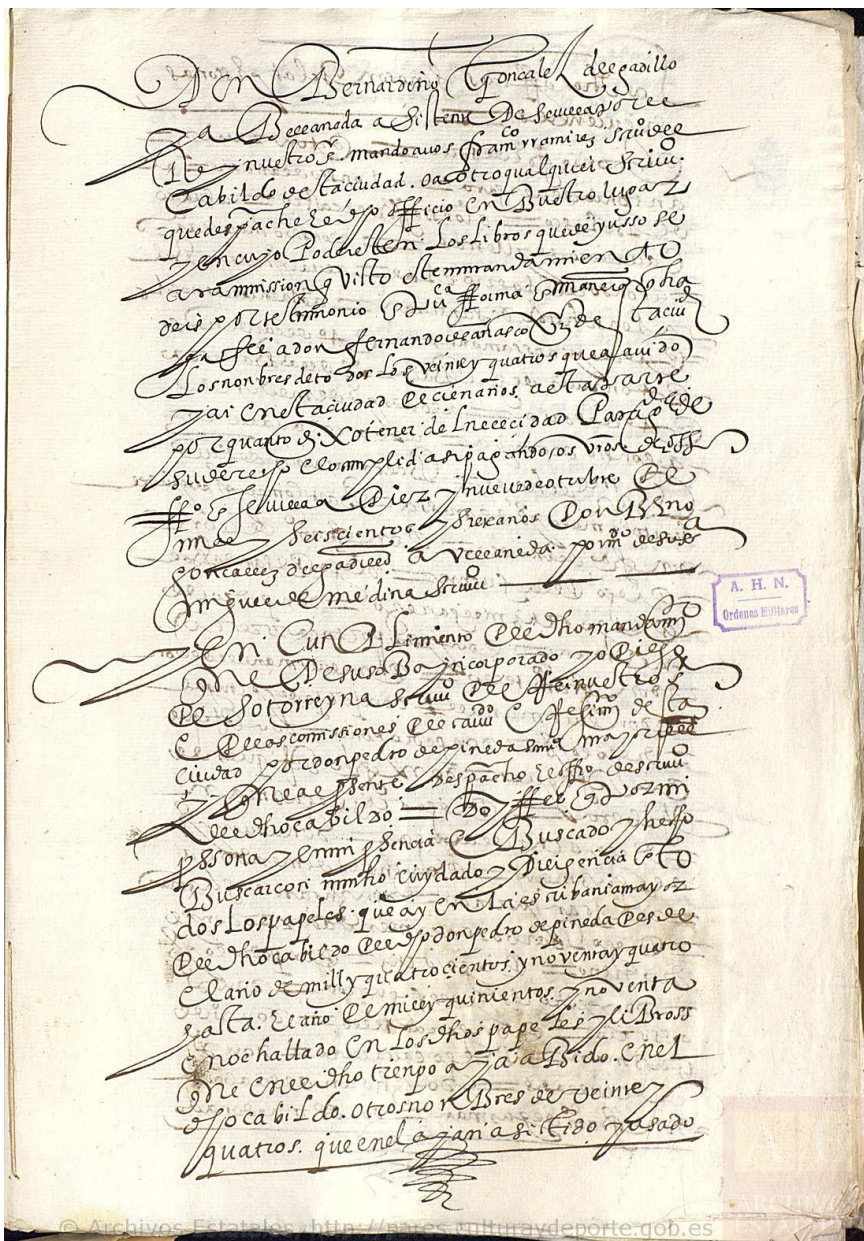 Don Bernardino Gonçalez delgadillo
y a Bellaneda asistente De sevilla por el
Rey nuestro sr. mando a vos franco rramirez scriuo del
Cabildo desta ciudad. o a otro qualquier scriuo.
que despache el dho officio En Buestro lugar
y en cuyo Poder esten Los Libros que de yusso se
ara mission q visto este mandamiento
deis por testimonio En forma En manera q haga
fe a don fernando carrasco vzo de esta ciud
Los nonbres de todos los veinte y quatros que a auido
y ai en esta ciudad de cien años a esta parte
por quanto dixo tener de l necesidad Para
su derecho cloumplid asi pagandoos vros derechos
fho En sevilla a Diez y nueue de otubre de
mil y seiscientos y años Don Bno
Gonçalez delgadillo a vellaneda. por mdo de su sa
miguel de medina scriuo
En Cunplimiento del dho mandamo
que De suso Ba yncorporado yo Diego
de Sotorreyna scriuo del Rei nuestro sr
E de las comissiones del cauildo desta
ciudad por don pedro de pineda scriuo mayor del
y que al presente Despacho el offio de scriuo
del dho cabildo = Doy ffee que por mi
perssona y en mi pressencia E Buscado y hecho
Buscar con mucho cuydado y Diligencia En to
dos Los papeles. que ay en La escribania mayor
del dho cabildo del dho don pedro de pineda desde
el año de mill y quatrocientos y noventa y quatro
hasta. el año de mill y quinientos. y noventa
e no e hallado En Los dhos papeles y liBross
que en el dho tienpo aya aBido. En el
dho cabildo. otros nonBres de veinte y
quatros. que en el ayan asistido y usado
A. H. N.
Ordenes Militares
© Archivos Estatales, http://pares.culturaydeporte.gob.es